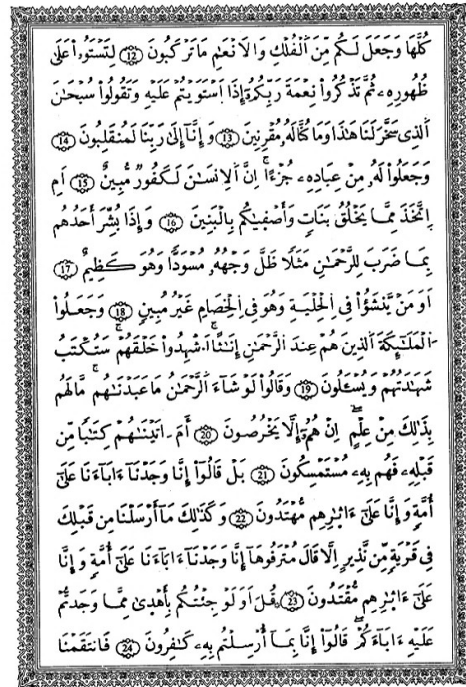 كُلَّهَا وَجَعَلَ لَكُم مِّنَ اَلْفُلْكِ وَالَانْعَٰمِ مَا تَرْكَبُونَ 12 لِتَسْتَوُۥاْ عَلَىٰ
ظُهُورِهِۦ ثُمَّ تَذْكُرُواْ نِعْمَةَ رَبِّكُمُۥٓ إِذَا اَسْتَوَيْتُمْ عَلَيْهِ وَتَقُولُواْ سُبْحَٰنَ
اَلذِى سَخَّرَ لَنَا هَٰذَا وَمَا كُنَّا لَهُۥ مُقْرِنِينَ 13 وَإِنَّآ إِلَىٰ رَبِّنَا لَمُنقَلِبُونَ 14
وَجَعَلُواْ لَهُۥ مِنْ عِبَادِهِۦ جُزْءًا اِنَّ اَلِانسَٰنَ لَكَفُورٌ مُّبِينٌ 15 اَمِ
اِتَّخَذَ مِمَّا يَخْلُقُ بَنَاتٍ وَأَصْفَيٰكُم بِالْبَنِينَ 16 وَإِذَا بُشِّرَ أَحَدُهُم
بِمَا ضَرَبَ لِلرَّحْمَٰنِ مَثَلًا ظَلَّ وَجْهُهُۥ مُسْوَدًّا وَهُوَ كَظِيمٌ 17
اَوَمَنْ يَنْشَؤُاْ فِى اِلْحِلْيَةِ وَهُوَ فِى اِلْخِصَامِ غَيْرُ مُبِينٍ 18 وَجَعَلُواْ
اَلْمَلَٰٓئِكَةَ اَلذِينَ هُمْ عِندَ اَلرَّحْمَٰنِ إِنَٰثًا اَ۟شْهِدُواْ خَلْقَهُمْ سَتُكْتَبُ
شَهَٰدَتُهُمْ وَيُسْـَٔلُونَ 19 وَقَالُواْ لَوْ شَآءَ اَلرَّحْمَٰنُ مَا عَبَدْنَٰهُم مَّا لَهُم
بِذَٰلِكَ مِنْ عِلْمٍ اِنْ هُمُۥٓ إِلَّا يَخْرُصُونَ 20 أَمَ اٰتَيْنَٰهُمْ كِتَٰبًا مِّن
قَبْلِهِۦ فَهُم بِهِۦ مُسْتَمْسِكُونَ 21 بَلْ قَالُواْ إِنَّا وَجَدْنَآ ءَابَآءَنَا عَلَىٰٓ
أُمَّةٍ وَإِنَّا عَلَىٰٓ ءَاثٰرِهِم مُّهْتَدُونَ 22 وَكَذَٰلِكَ مَآ أَرْسَلْنَا مِن قَبْلِكَ
فِى قَرْيَةٍ مِّن نَّذِيرٍ اِلَّا قَالَ مُتْرَفُوهَآ إِنَّا وَجَدْنَآ ءَابَآءَنَا عَلَىٰٓ أُمَّةٍ وَإِنَّا
عَلَىٰٓ ءَاثٰرِهِم مُّقْتَدُونَ 23 قُلَ اَوَلَوْ جِئْتُكُم بِأَهْدَىٰ مِمَّا وَجَدتُّمْ
عَلَيْهِ ءَابَآءَكُمْ قَالُوٓاْ إِنَّا بِمَآ أُرْسِلْتُم بِهِۦ كَٰفِرُونَ 24 فَانتَقَمْنَا